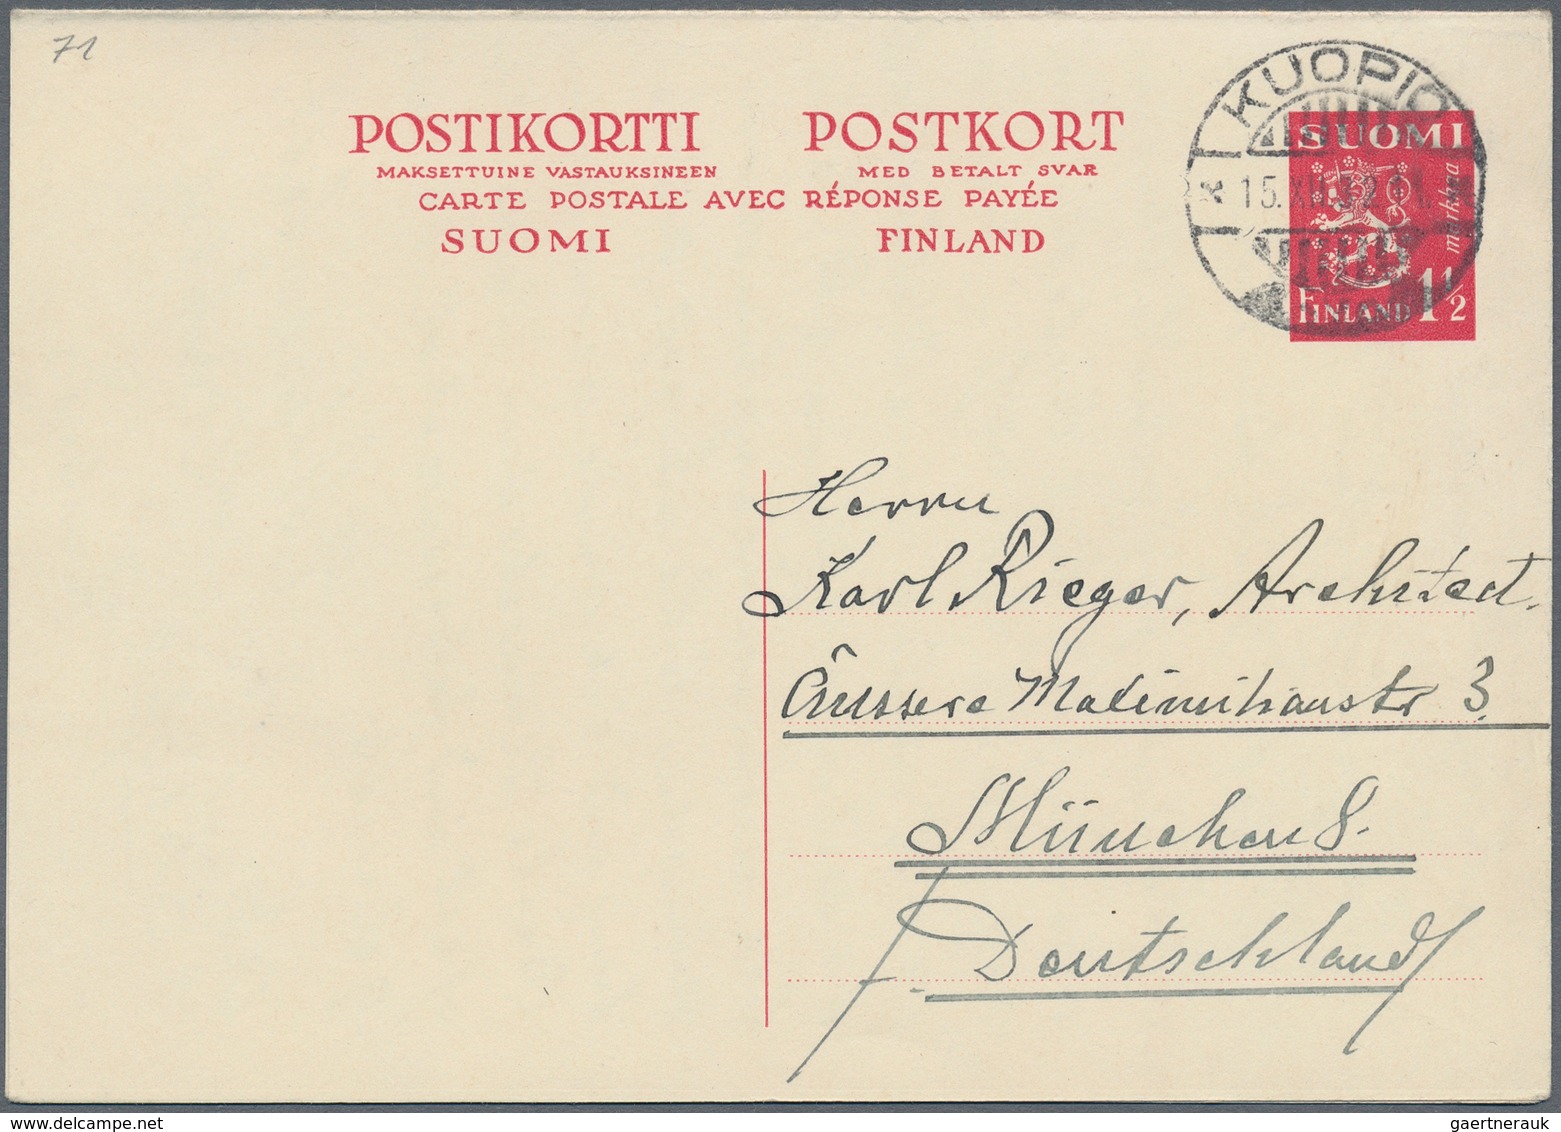 71
POSTIKORTTI POSTKORT
MAKSETTUINE VASTAUKSINEEN MED BETALT SVAR
CARTE POSTALE AVEC RÉPONSE PAYÉE
SUOMI FINLAND
KUOPIO
15.XII.32.11.
SUOMI
markkaa
FINLAND 1½
Herrn
Karl Rieger, Architect.
Äussere Maximilianstr 3
München 8.
Deutschland
gaertnerauk